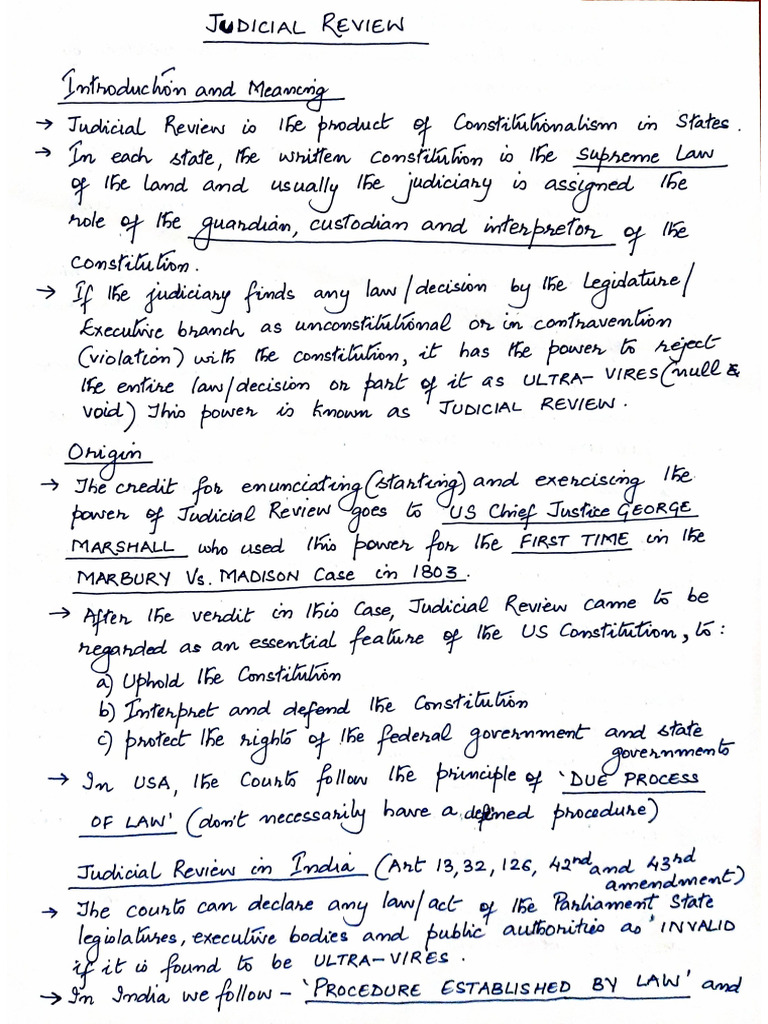 JUDICIAL REVIEW
Introduction and Meaning
→ Judicial Review is the product of Constitutionalism in States.
→ In each state, the written constitution is the Supreme Law
of the land and usually the judiciary is assigned the
role of the guardian, custodian and interpretor of the
constitution.
→ If the judiciary finds any law/decision by the Legislature/
Executive branch as unconstitutional or in contravention
(violation) with the constitution, it has the power to reject
the entire law/decision or part of it as ULTRA-VIRES (null &
void) This power is known as JUDICIAL REVIEW.
Origin
→ The credit for enunciating (starting) and exercising the
power of Judicial Review goes to US Chief Justice GEORGE
MARSHALL who used this power for the FIRST TIME in the
MARBURY Vs. MADISON Case in 1803.
→ After the verdit in this Case, Judicial Review came to be
regarded as an essential feature of the US Constitution, to:
a) Uphold the Constitution
b) Interpret and defend the Constitution
c) protect the rights of the federal government and state
governments
→ In USA, the Courts follow the principle of 'DUE PROCESS
OF LAW' (don't necessarily have a defined procedure)
Judicial Review in India (Art 13, 32, 126, 42nd and 43rd
amendment)
→ The courts can declare any law/act of the Parliament State
legislatures, executive bodies and public authorities as 'INVALID
if it is found to be ULTRA-VIRES.
→ In India we follow - 'PROCEDURE ESTABLISHED BY LAW' and